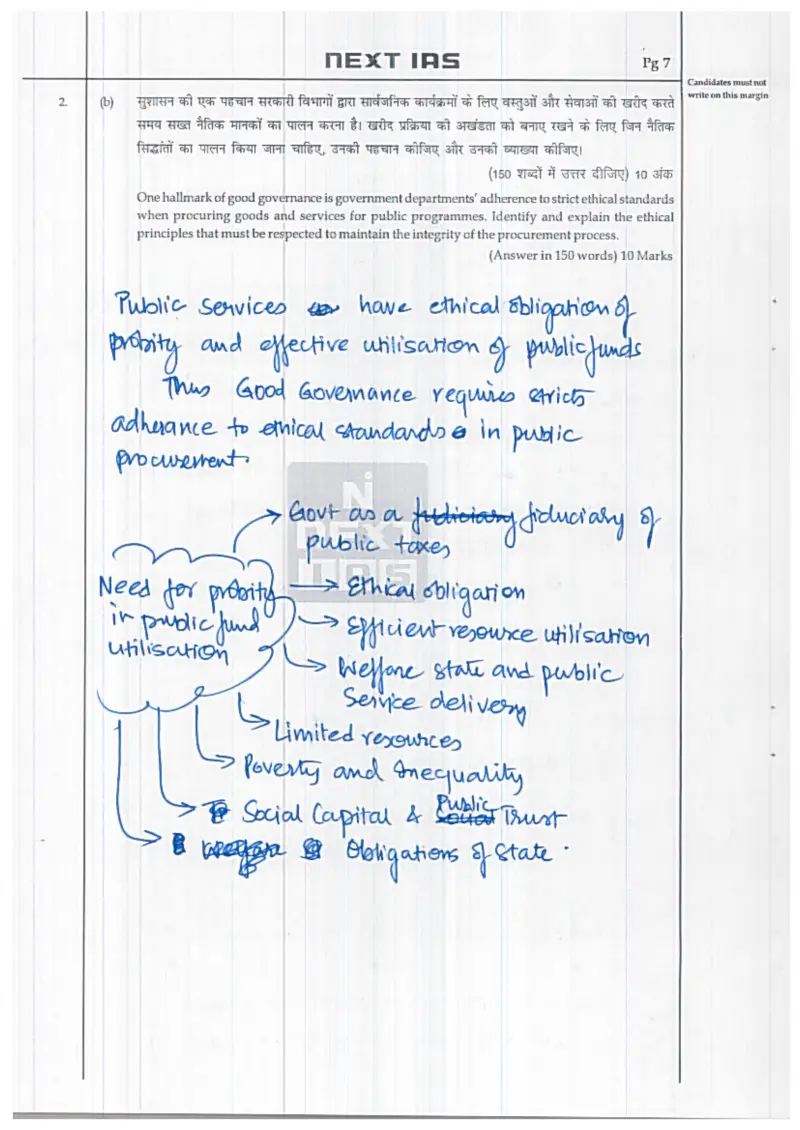 NEXT IAS
Pg 7
Candidates must not
write on this margin
2. (b) सुशासन की एक पहचान सरकारी विभागों द्वारा सार्वजनिक कार्यक्रमों के लिए वस्तुओं और सेवाओं की खरीद करते
समय सख्त नैतिक मानकों का पालन करना है। खरीद प्रक्रिया की अखंडता को बनाए रखने के लिए जिन नैतिक
सिद्धांतों का पालन किया जाना चाहिए, उनकी पहचान कीजिए और उनकी व्याख्या कीजिए।
(150 शब्दों में उत्तर दीजिए) 10 अंक
One hallmark of good governance is government departments' adherence to strict ethical standards
when procuring goods and services for public programmes. Identify and explain the ethical
principles that must be respected to maintain the integrity of the procurement process.
(Answer in 150 words) 10 Marks
Public Services have ethical obligation of
probity and effective utilisation of public funds
Thus Good Governance requires stricts
adherance to ethical standards in public
procurement.
NEXT IAS
Govt as a judiciary fiduciary of
public taxes
Need for probity
in public fund
utilisation
Ethical obligation
Efficient resource utilisation
Welfare state and public
Service delivery
Limited resources
Poverty and Inequality
Social Capital & Public Trust
Obligations of State.